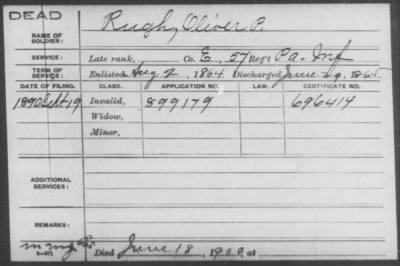 DEAD
NAME OF SOLDIER: Rugh, Oliver P.
SERVICE: Late rank, Co. E, 57 Reg't Pa. Inf
TERM OF SERVICE: Enlisted Aug 2, 1864, Discharged June 29, 1865
DATE OF FILING. CLASS. APPLICATION NO. LAW. CERTIFICATE NO.
1890 Sept 19 Invalid, 899179 696414
Widow,
Minor,
ADDITIONAL SERVICES:
REMARKS:
Died June 18, 1900, at